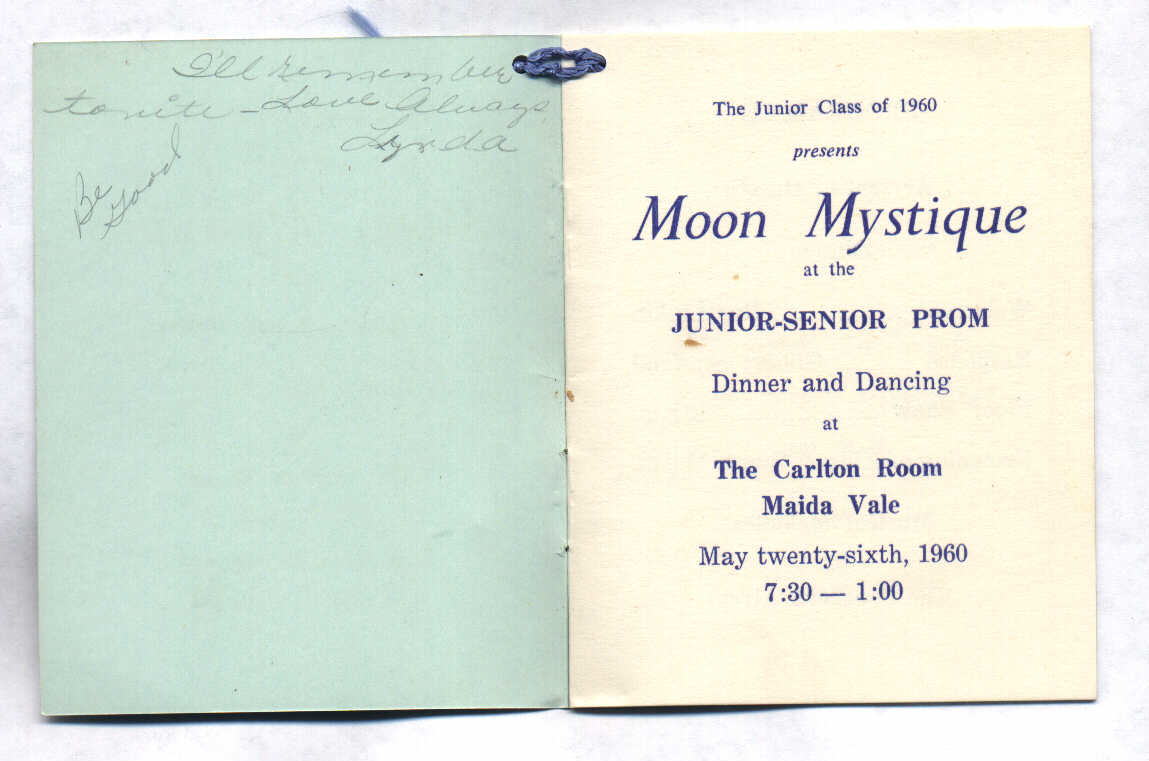 I'll Remember
tonite - Love Always,
Lynda
Be
Good
The Junior Class of 1960
presents
Moon Mystique
at the
JUNIOR-SENIOR PROM
Dinner and Dancing
at
The Carlton Room
Maida Vale
May twenty-sixth, 1960
7:30 — 1:00